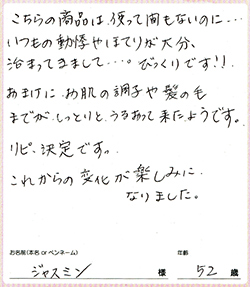 こちらの商品は、使って間もないのに…
いつもの動悸やほてりが大分、
治まってきまして…。びっくりです!!
おまけに、お肌の調子や髪の毛
までが、しっとりと、うるおって来たようです。
リピ、決定ですっ。
これからの変化が楽しみに
なりました。
お名前(本名 or ペンネーム)
年齢
ジャスミン 様 52 歳